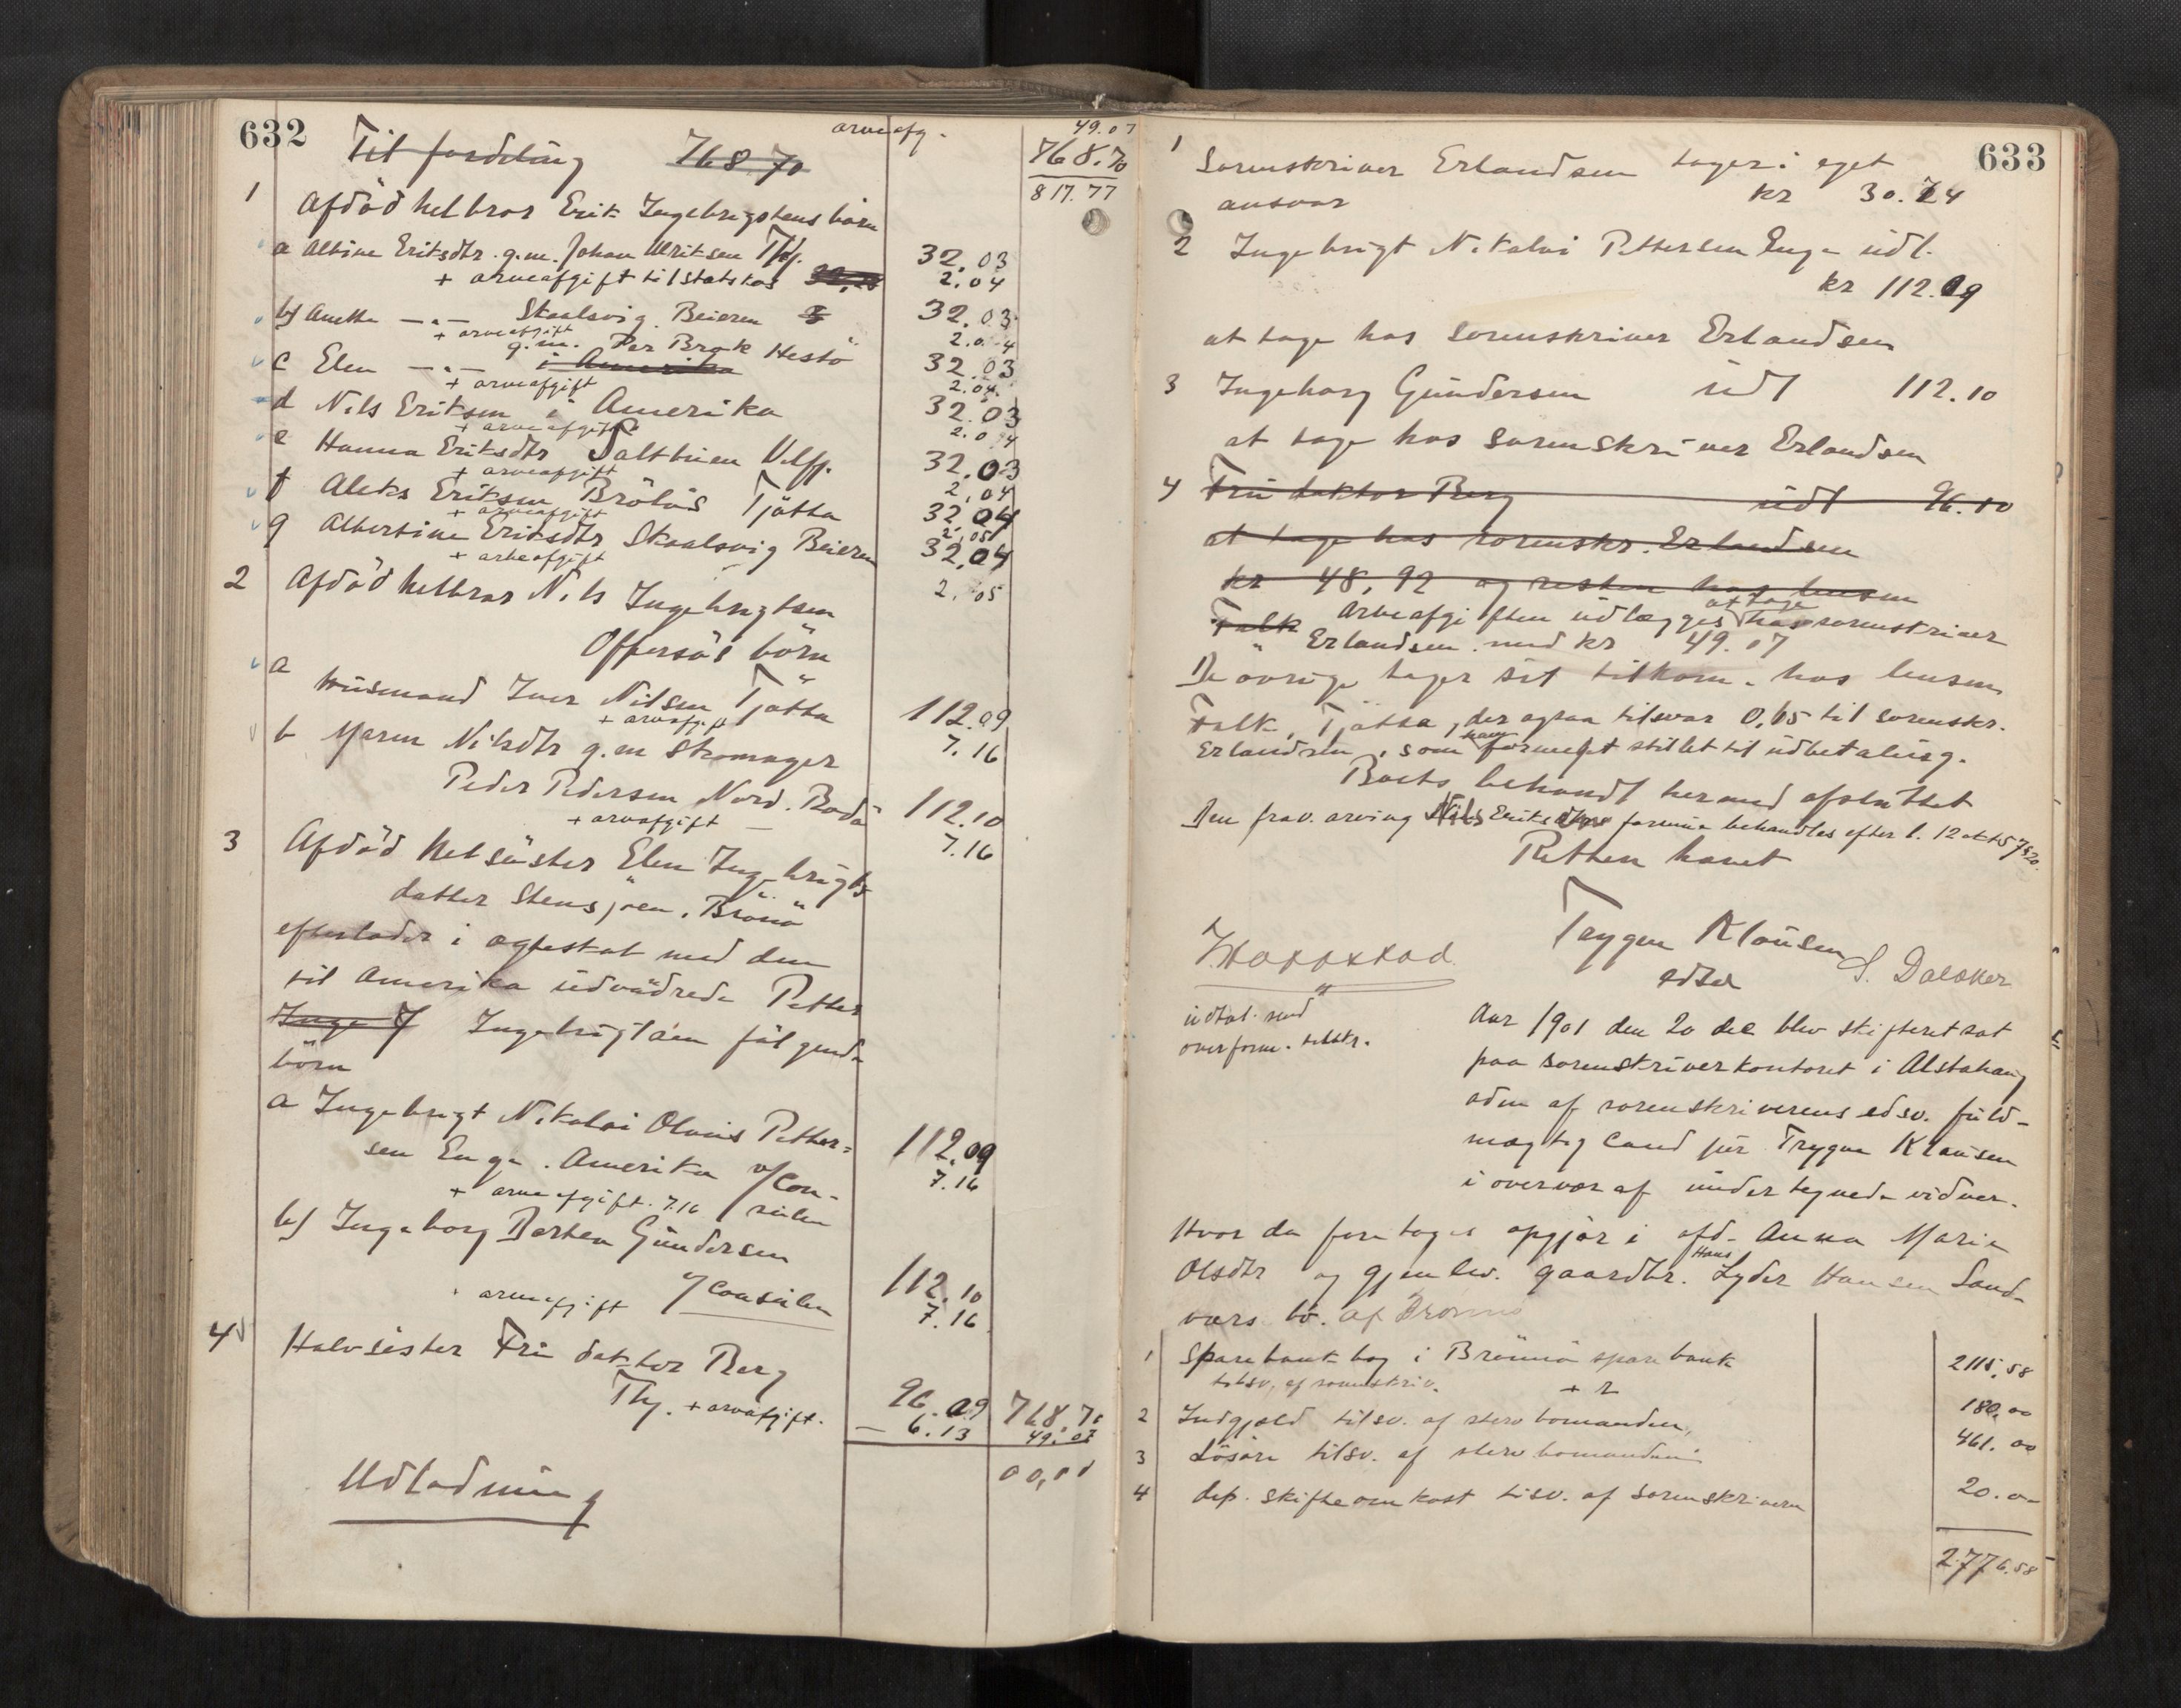 632
arveafg.
49.07
Til fordeling 768.70
768.70
817.77
1 Afdöd helbror Erik Ingebrigtsens börn
a Albine Eriksdtr. g.m. Johan Ulriksen 32.03
+ arveafgift til statskas 2.04
b/ Anette —"— Skaalsvig Beieren 32.03
+ arveafgift 2.04
g.m. Per Brok Hestö
c Elen —"— i Amerika 32.03
+ arveafgift 2.04
d Nils Eriksen i Amerika 32.03
+ arveafgift 2.04
e Hanna Eriksdtr Salthuen 32.03
+ arveafgift 2.04
f Aleks Eriksen Brölös Tjötta 32.04
+ arveafgift 2.05
g Albertine Eriksdtr Skaalsvig Beieren 32.04
+ arveafgift 2.05
2 Afdöd helbror Nils Ingebrigtsen
Offersöl börn
a Husmand Iver Nilsen Tjötta 112.09
+ arveafgift 7.16
b Maren Nilsdtr g.m skomager
Peder Pedersen Nord. Bodö 112.10
+ arveafgift 7.16
3 Afdöd helsöster Elen Ingebrigts
datter Stensjöen, Brönö
efterlader i ægteskab med den
til Amerika udvandrede Petter
Inge Ingebrigtsen fölgende
börn
a Ingebrigt Nikolai Olaus Petter=
sen Enge. Amerika v/ Con- 112.09
+ arveafgift. 7.16 sulen 7.16
b/ Ingeborg Berthea Gundersen
v/ Consulen 112.10
arveafgift 7.16
4 Halvsöster Fru doktor Berg
Thj. + arveafgift. 96.09 768.70
6.13 49.07
00,00
Udlodning
633
1 Sorenskriver Erlandsen tager i eget
ansvar kr 30.24
2 Ingebrigt Nikolai Pettersen Enge udl.
kr 112.09
at tage hos sorenskriver Erlandsen
3 Ingeborg Gundersen udl 112.10
at tage hos sorenskriver Erlandsen
4 Fru doktor Berg udl 96.10
at tage hos sorenskr. Erlandsen
kr 48,92 og resten hos lensm
Falk Arveafgiften udlægges at tage hos sorenskriver
Erlandsen med kr 49.07
De övrige tager sit tilkom. hos lensm
Falk, Tjötta, der ogsaa tilsvar 0,65 til sorenskr.
Erlandsen, som har formuet stillet til udbetaling.
Boets behandl hermed afsluttet
Den frav. arving Nils Eriksens formue behandles efter l. 12 okt 57 § 20.
Retten hævet
Trygve Klausen
edsv
S. Dalsker
udtal. med
overform. tilstr.
Aar 1901 den 20 dec blev skifteret sat
paa sorenskriverkontoret i Alstahaug
adm af sorenskriverens edsv. fuld-
mægtig cand jur Trygve Klausen
i overvær af undertegnede vidner.
Hvor da foretoges opgjör i afd. Anna Marie
Olsdtr og gjenlev. gaardbr. Hans Lyder Hansen Sand-
værs bo. af Brönnö
1 Sparebankbog i Brönnö sparebank 2115,58
tilsv. af sorenskriv. + r
2 Indgjæld tilsv. af stervbomanden, 180,00
3 Lösöre tilsv. af stervbomanden 461.00
4 dep. skifteomkost tilsv. af sorenskriveren 20.0-
2776.58